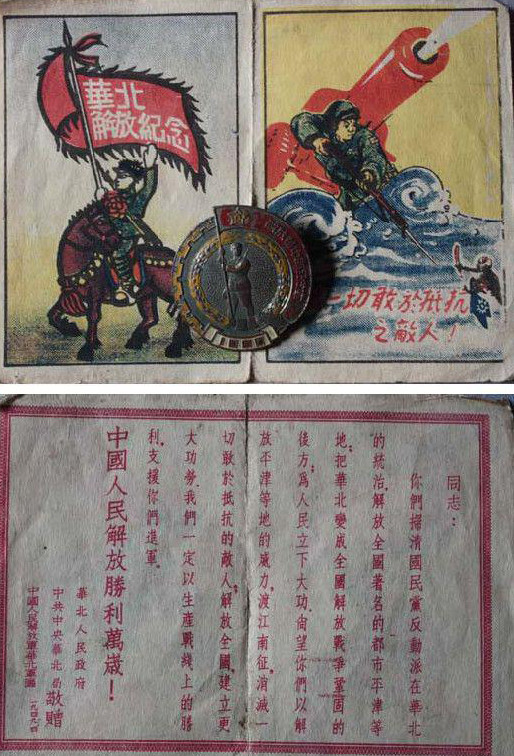 華北
解放紀念
一切敢於抵抗
之敵人！
同志：
你們掃清國民黨反動派在華北
的統治，解放全國著名的都市平津等
地；把華北變成全國解放戰爭鞏固的
後方；爲人民立下大功．尙望你們以解
放平津等地的威力，渡江南征，消滅一
切敢於抵抗的敵人，解放全國，建立更
大功勞．我們一定以生產戰綫上的勝
利，支援你們進軍．
中國人民解放勝利萬歲！
華北人民政府
中共中央華北局
中國人民解放軍華北軍區
敬贈
一九四九．四